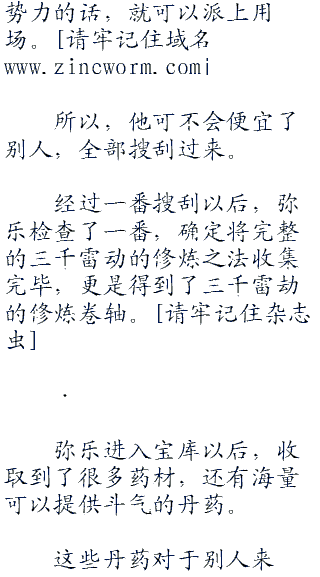 势力的话，就可以派上用
场。[请牢记住域名
www.zincworm.com¡
所以，他可不会便宜了
别人，全部搜刮过来。
经过一番搜刮以后，弥
乐检查了一番，确定将完整
的三千雷动的修炼之法收集
完毕，更是得到了三千雷劫
的修炼卷轴。[请牢记住杂志
虫]
.
弥乐进入宝库以后，收
取到了很多药材，还有海量
可以提供斗气的丹药。
这些丹药对于别人来